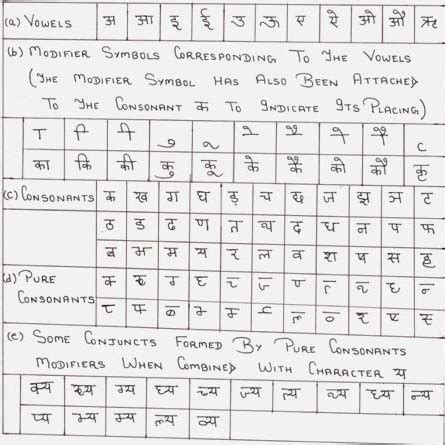 (a) VOWELS अ आ इ ई उ ऊ ए ऐ ओ औ ऋ
(b) MODIFIER SYMBOLS CORRESPONDING TO THE VOWELS
(THE MODIFIER SYMBOL HAS ALSO BEEN ATTACHED
TO THE CONSONANT क TO INDICATE ITS PLACING)
ा ि ी ु ू े ै ो ौ ृ
का कि की कु कू के कै को कौ कृ
(c) CONSONANTS क ख ग घ ङ च छ ज झ ञ ट
ठ ड ढ ण त थ द ध न प फ
ब भ म य र ल व श ष स ह
(d) PURE
CONSONANTS
(e) SOME CONJUNCTS FORMED BY PURE CONSONANTS
MODIFIERS WHEN COMBINED WITH CHARACTER य
क्य ख्य ग्य घ्य च्य ज्य त्य थ्य ध्य न्य
प्य भ्य म्य ल्य व्य